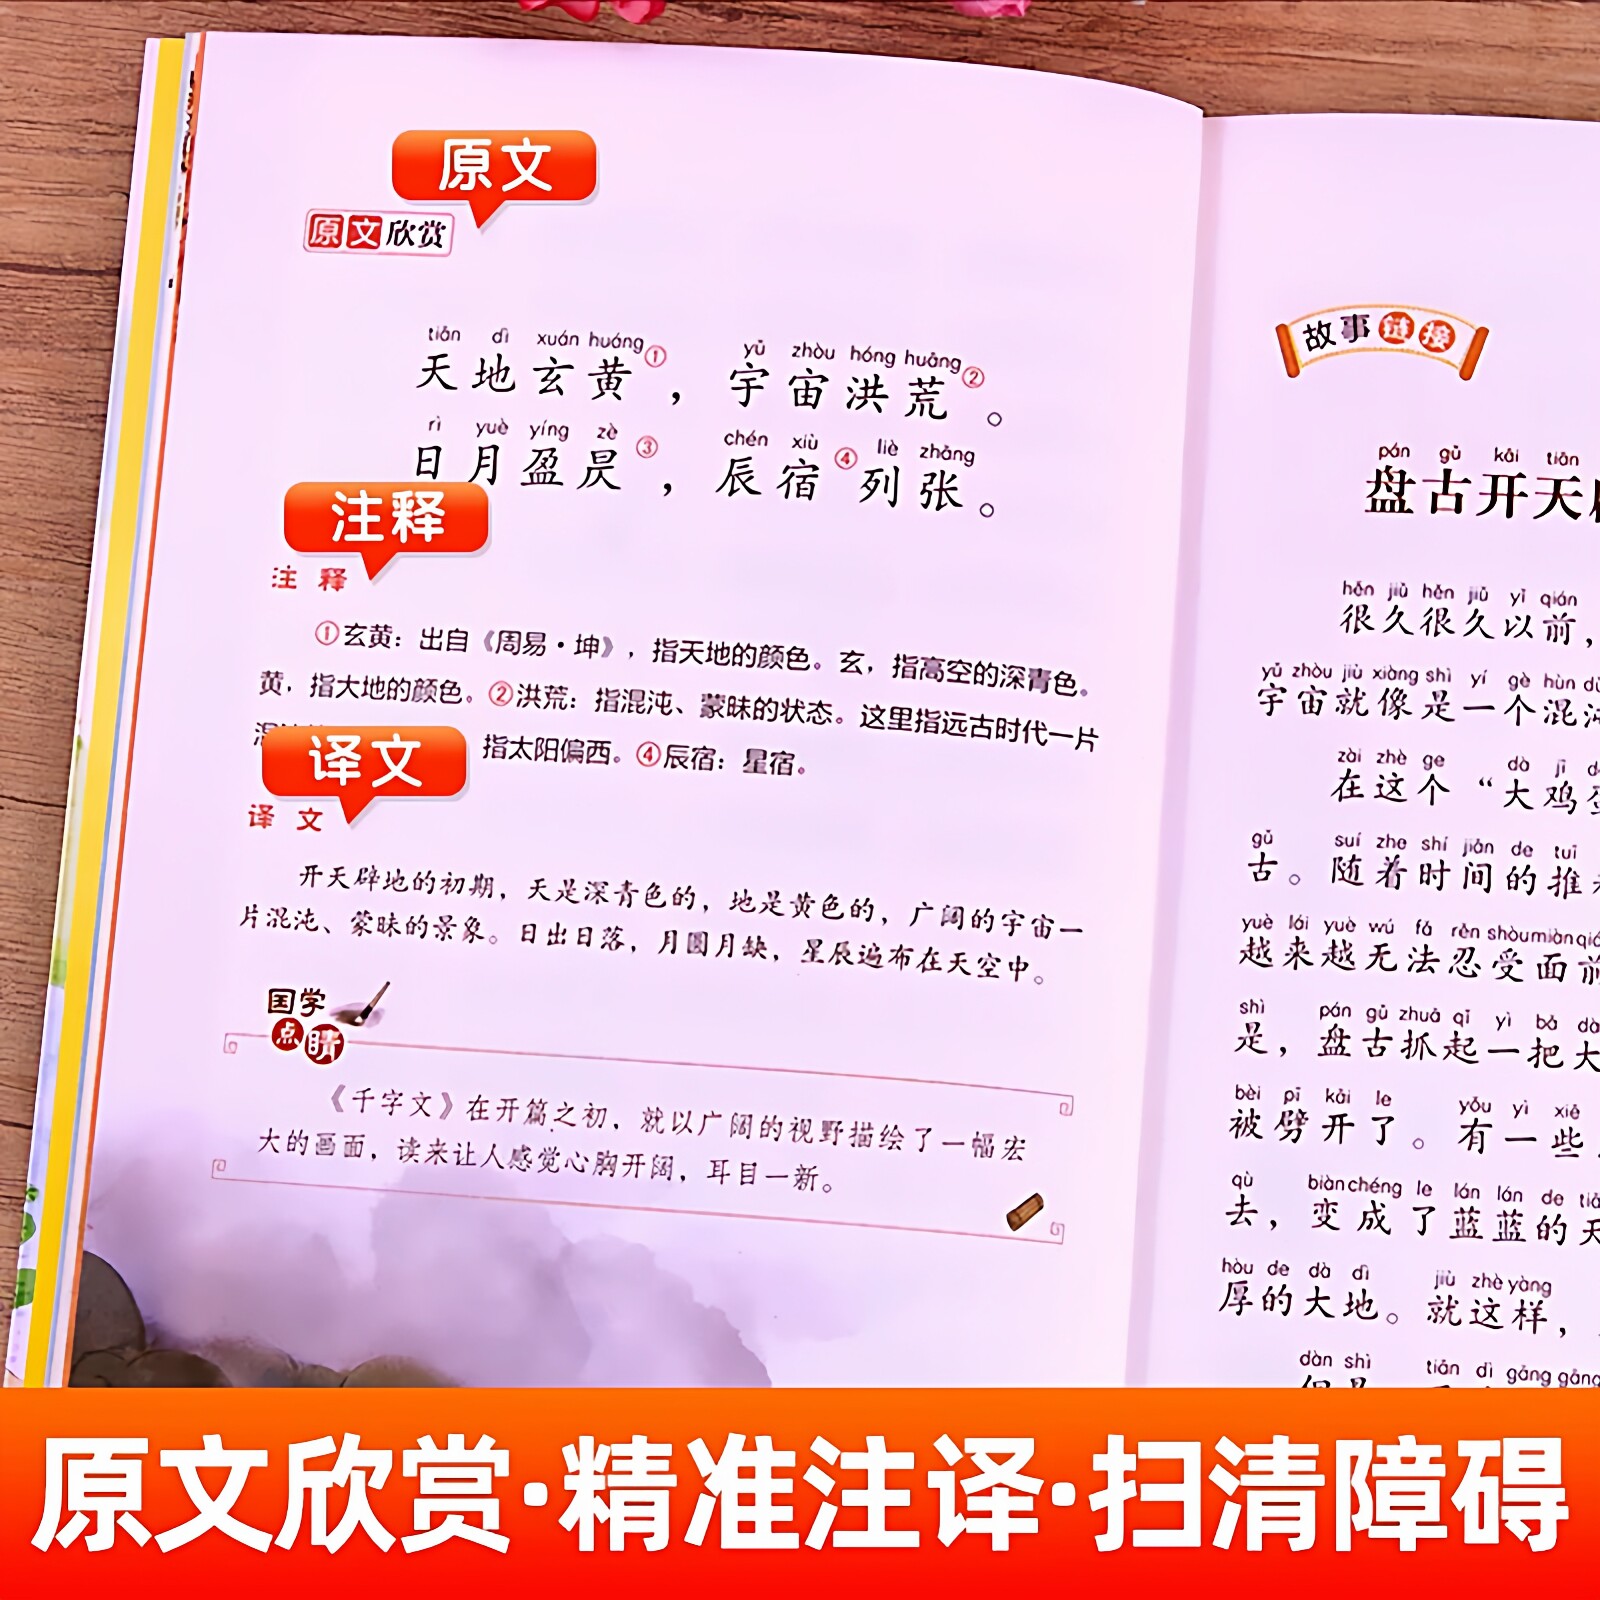 原文
原文欣赏
tiān dì xuán huáng yǔ zhòu hóng huāng
天地玄黄①，宇宙洪荒②。
rì yuè yíng zè chén xiù liè zhāng
日月盈昃③，辰宿④列张。
注释
注 释
①玄黄：出自《周易·坤》，指天地的颜色。玄，指高空的深青色。
黄，指大地的颜色。②洪荒：指混沌、蒙昧的状态。这里指远古时代一片
指太阳偏西。④辰宿：星宿。
译文
译 文
开天辟地的初期，天是深青色的，地是黄色的，广阔的宇宙一
片混沌、蒙昧的景象。日出日落，月圆月缺，星辰遍布在天空中。
国学
点睛
《千字文》在开篇之初，就以广阔的视野描绘了一幅宏
大的画面，读来让人感觉心胸开阔，耳目一新。
故事链接
pán gǔ kāi tiān
盘古开天
hěn jiǔ hěn jiǔ yǐ qián
很久很久以前，
yǔ zhòu jiù xiàng shì yí gè hùn
宇宙就像是一个混
zài zhè ge dà jī
在这个“大鸡
gǔ suí zhe shí jiān de tuī
古。随着时间的推
yuè lái yuè wú fǎ rěn shòu miàn
越来越无法忍受面前
shì pán gǔ zhuā qǐ yì bǎ dà
是，盘古抓起一把大
bèi pī kāi le yǒu yì xiē
被劈开了。有一些
qù biàn chéng le lán lán de
去，变成了蓝蓝的天
hòu de dà dì jiù zhè yàng
厚的大地。就这样，
dàn shì tiān dì gāng gāng
原文欣赏·精准注译·扫清障碍